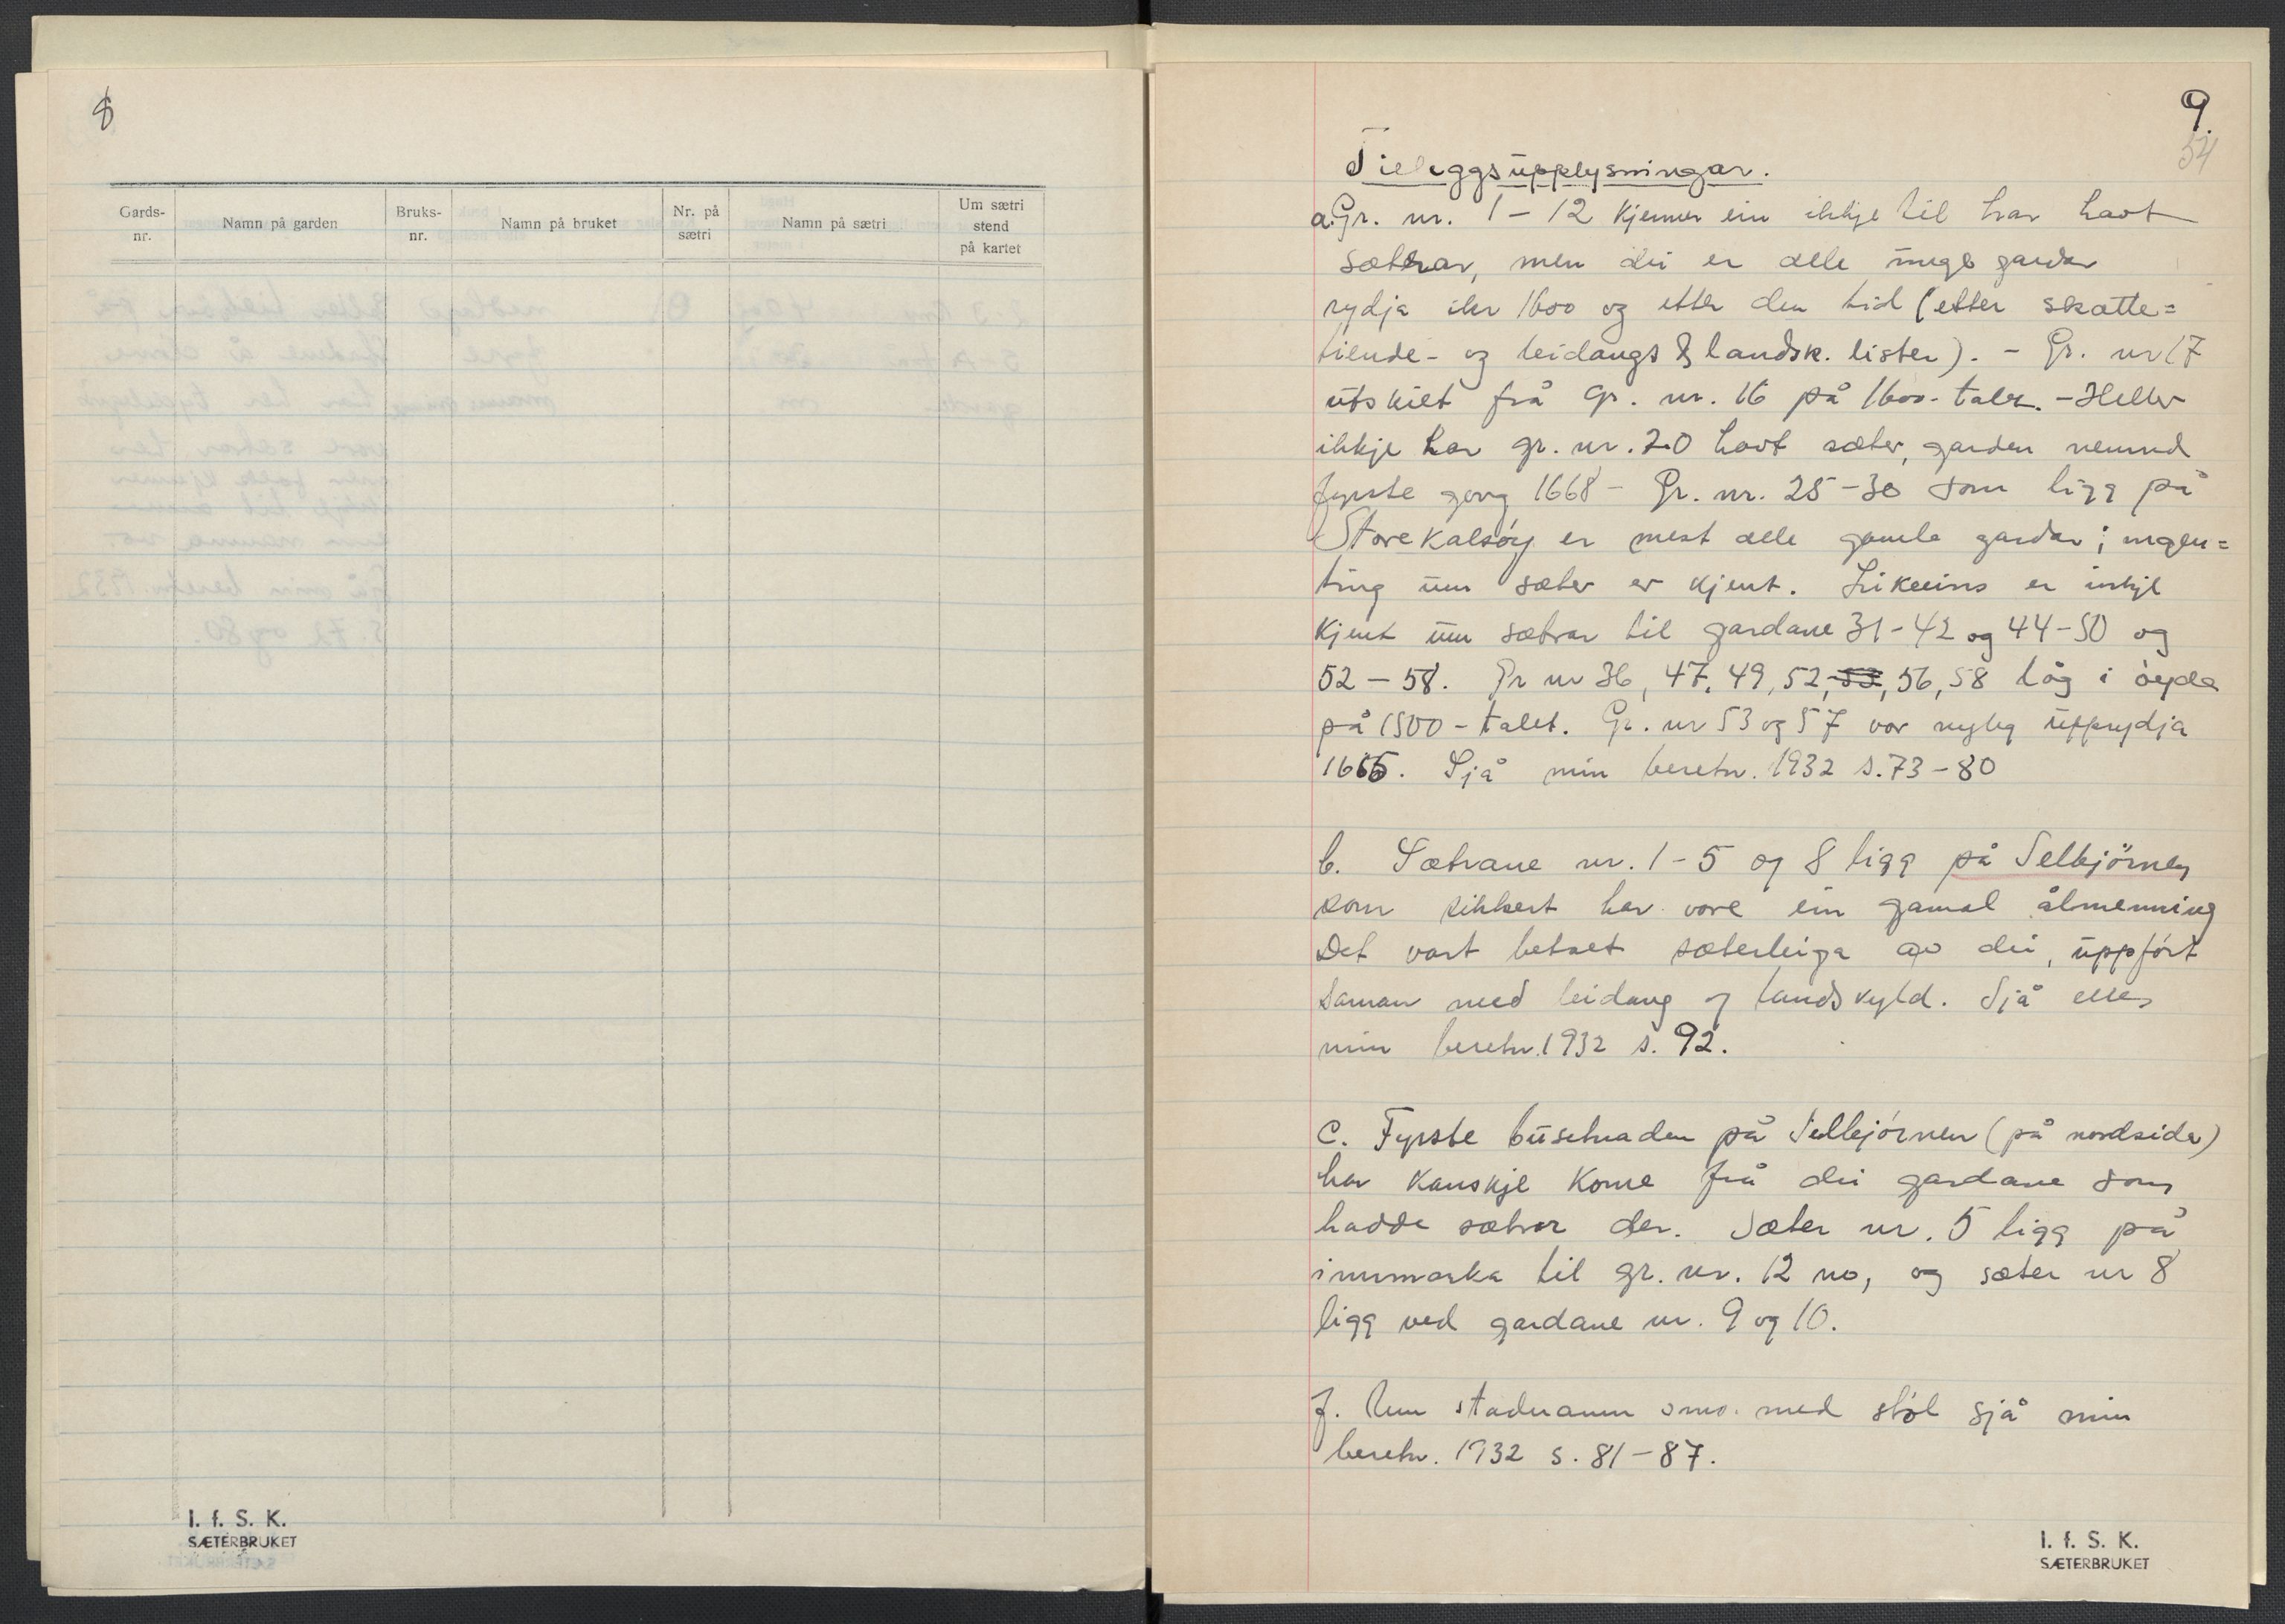 8
Gards-
nr.
Namn på garden
Bruks-
nr.
Namn på bruket
Nr. på
sætri
Namn på sætri
Um sætri
stend
på kartet
I. f. S. K.
SÆTERBRUKET
9.
54
Tilleggsupplysningar.
a. Gr. nr. 1 – 12 kjenner ein ikkje til har havt
sætrar, men dei er alle unge gardar
rydja ikr 1600 og etter den tid (etter skatte=
tiende- og leidangs & landsk. lister). – Gr. nr 17
utskilt frå gr. nr. 16 på 1600-talet. – Heller
ikkje har gr. nr. 20 havt sæter, garden nemnd
fyrste gong 1668 – Gr. nr. 25 – 30 som ligg på
Store Kalsøy er mest alle gamle gardar; ingen=
ting um sæter er kjent. Likeeins er inkje
kjent um sætrar til gardane 31 – 42 og 44 – 50 og
52 – 58. Gr nr 36, 47, 49, 52, 53, 56, 58 låg i øyde
på 1500-talet. Gr. nr 53 og 57 var nyleg upprydja
1665. Sjå min beretn. 1932 s. 73 – 80
b. Sætrane nr. 1 – 5 og 8 ligg på Selbjörnen
som sikkert har vore ein gamal ålmenning
Det vart betalt sæterleiga av dei, uppfört
saman med leidang og landskyld. Sjå elles
min beretn. 1932 s. 92.
c. Fyrste busetnaden på Selbjörnen (på nordsida)
har kanskje kome frå dei gardane som
hadde sætrar der. Sæter nr. 5 ligg på
innmarka til gr. nr. 12 no, og sæter nr 8
ligg ved gardane nr. 9 og 10.
f. Um stadnamn smo. med støl sjå min
beretn. 1932 s. 81 – 87.
I. f. S. K.
SÆTERBRUKET